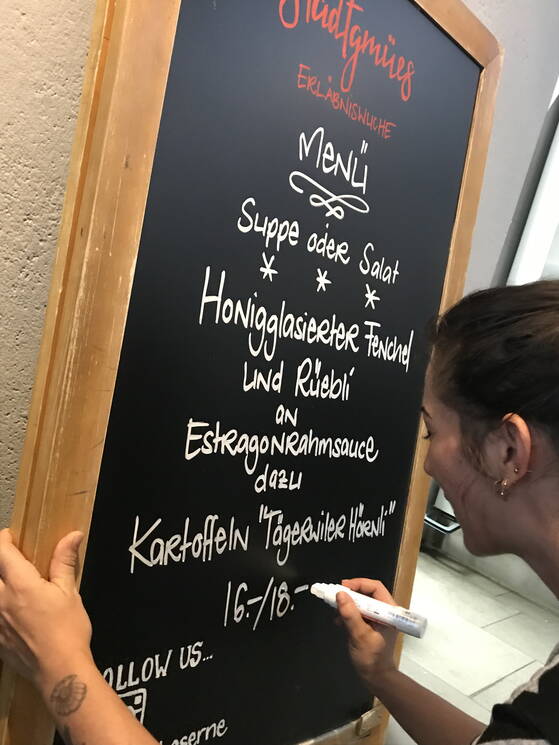 Stadtgmües
ERLÄBNISWUCHE
MENÜ
Suppe oder Salat
* * *
Honigglasierter Fenchel
und Rüebli
an
Estragonrahmsauce
dazu
Kartoffeln "Tägerwiler Hörnli"
16.-/18.-
OLLOW US...
aserne